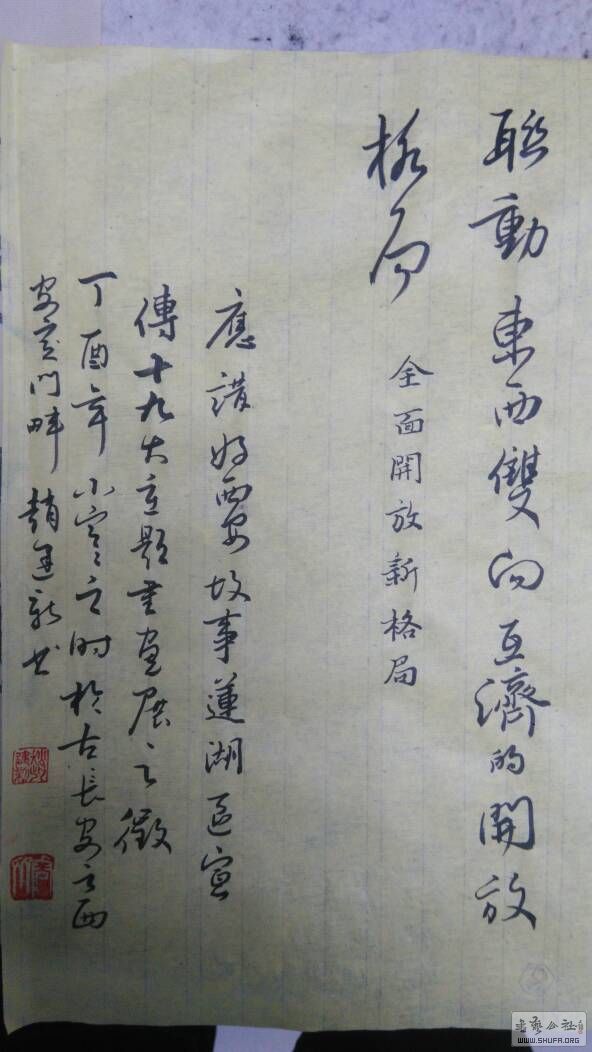 聯動東西雙向互濟的開放
格局 全面開放新格局
應講好西安故事蓮湖區宣
傳十九大主題書畫展之徵
丁酉年小寒之時於古長安之西
安定門畔趙建新書
書藝公社
WWW.SHUFA.ORG